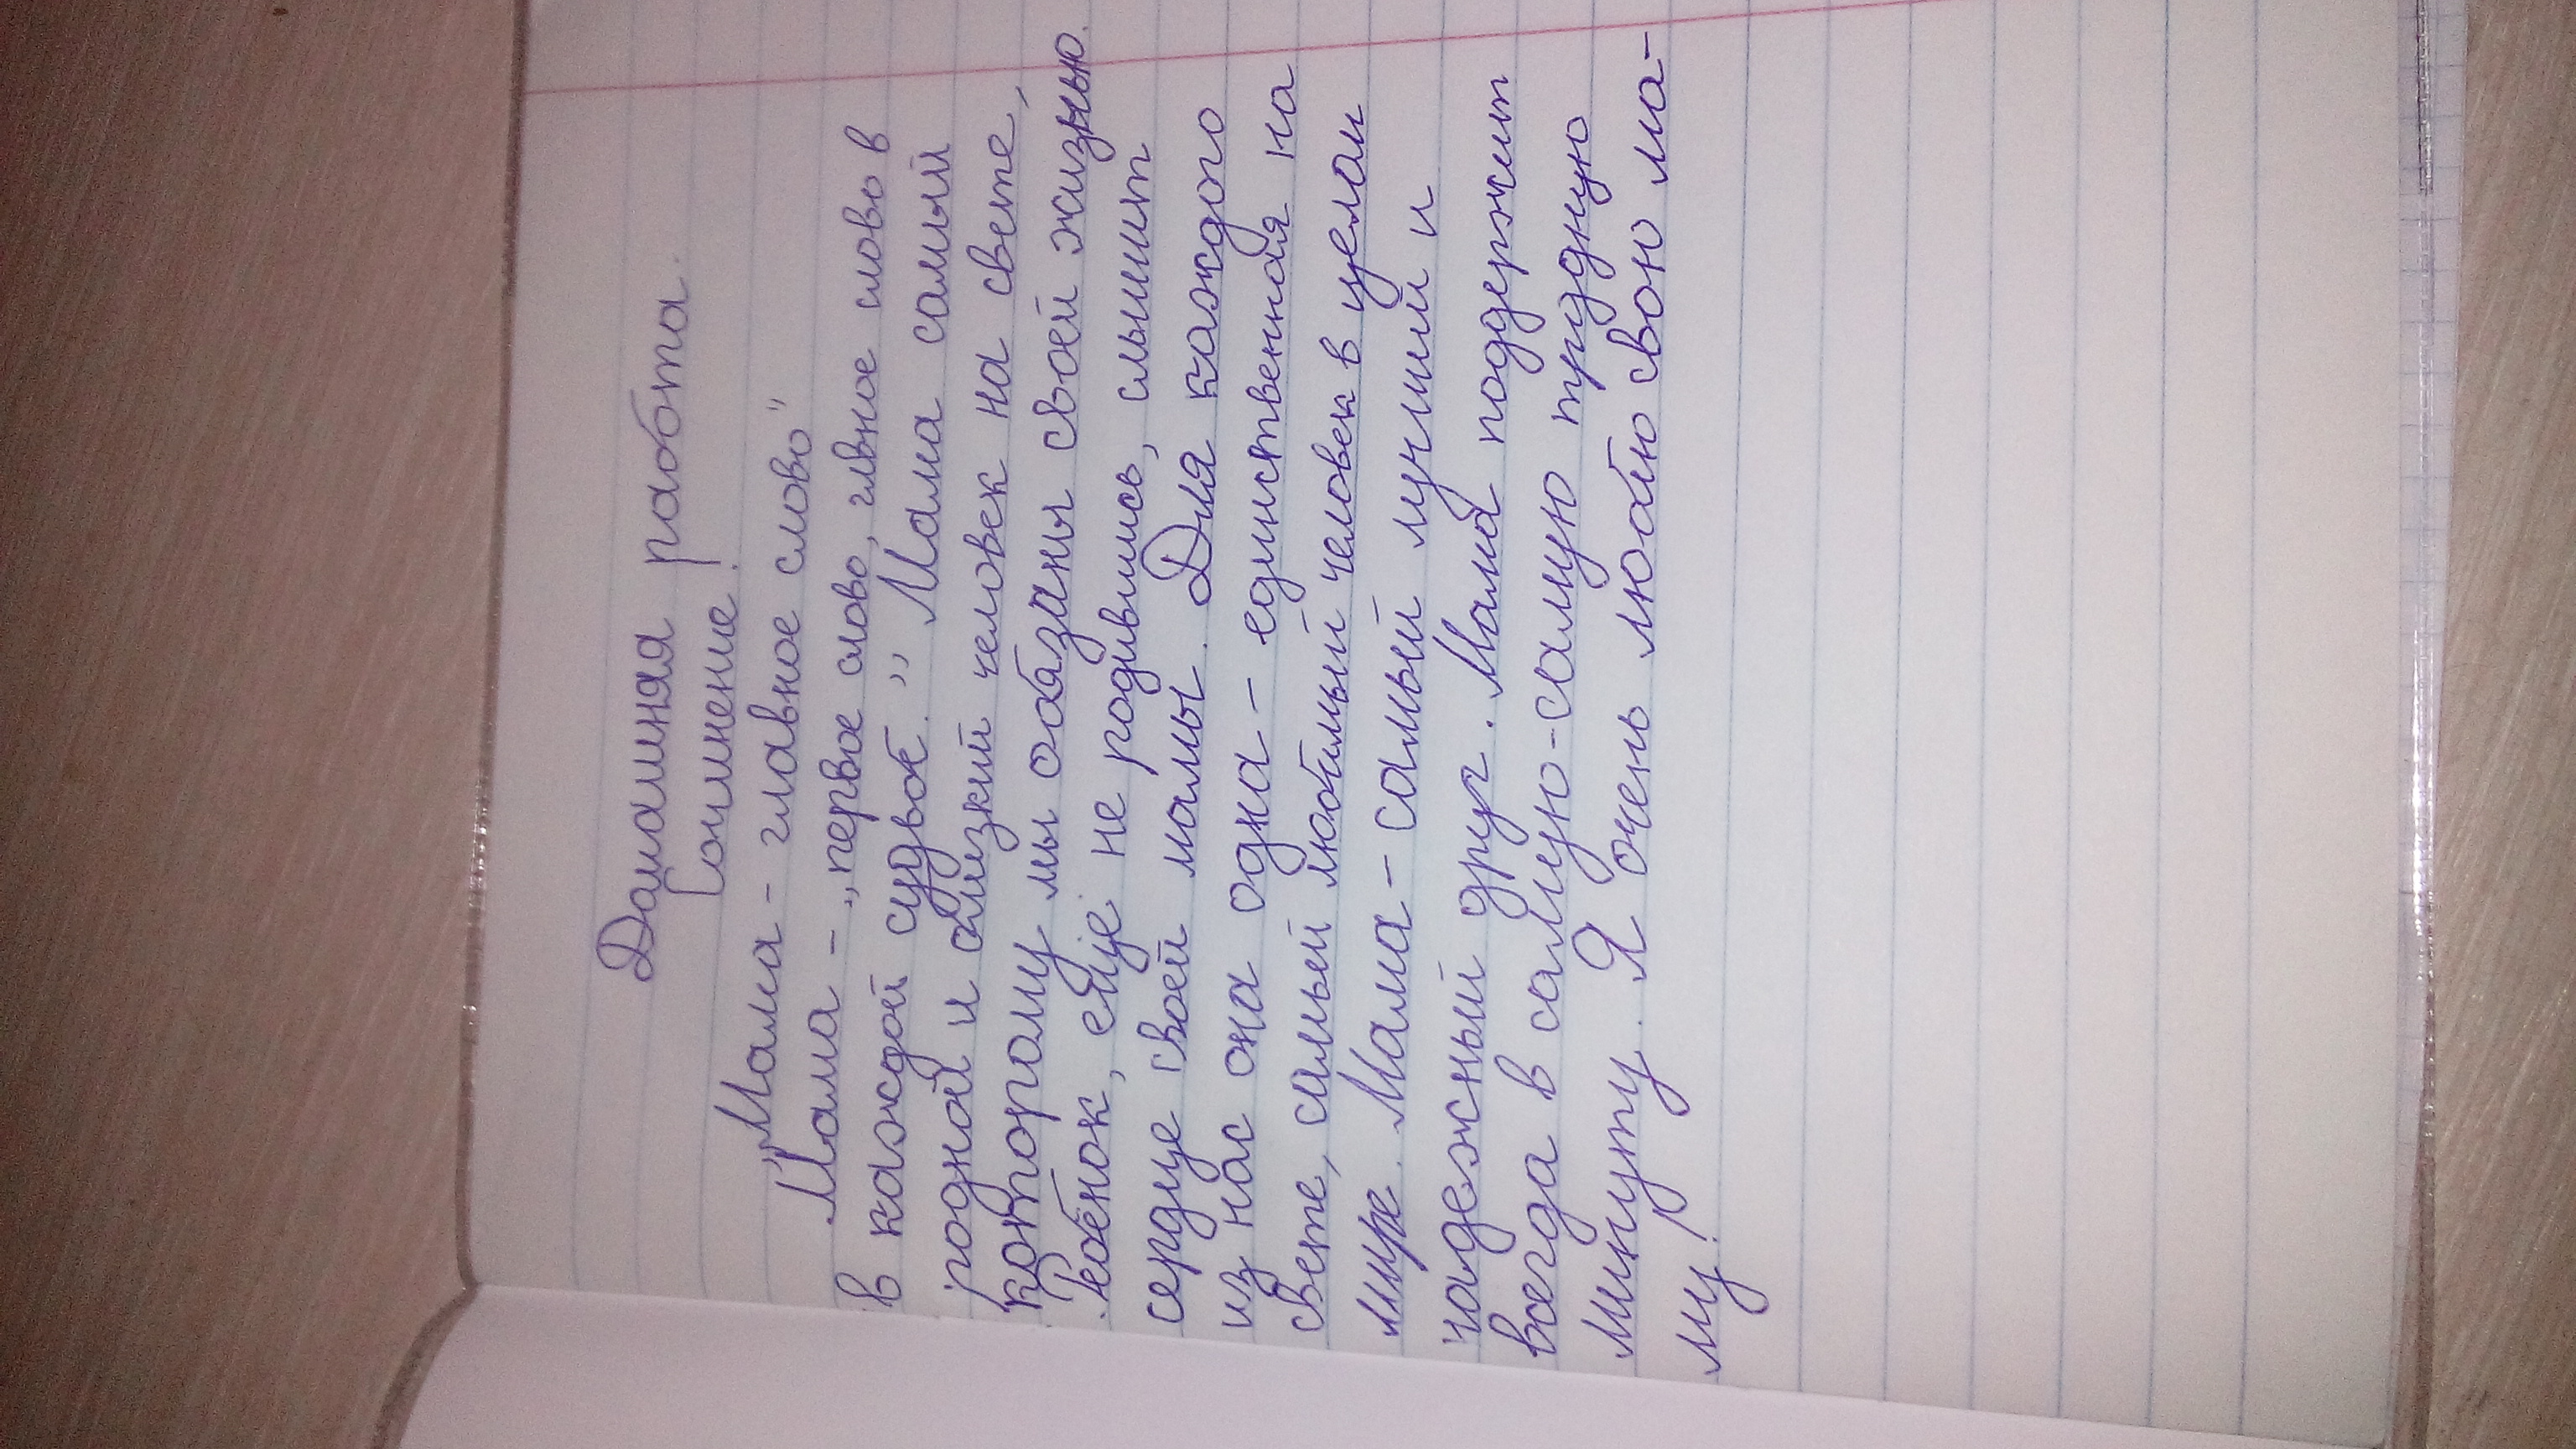 Домашняя работа.
Сочинение.
„Мама - главное слово"
Мама - „первое слово, главное слово в
в каждой судьбе.„ Мама самый
родной и близкий человек на свете,
которому мы обязаны своей жизнью.
Ребёнок, еще не родившись, слышит
сердце своей мамы. Для каждого
из нас она одна - единственная на
свете, самый любимый человек в целом
мире. Мама - самый лучший и
надежный друг. Мама поддержит
всегда в самую-самую трудную
минуту. Я очень люблю свою ма-
му!